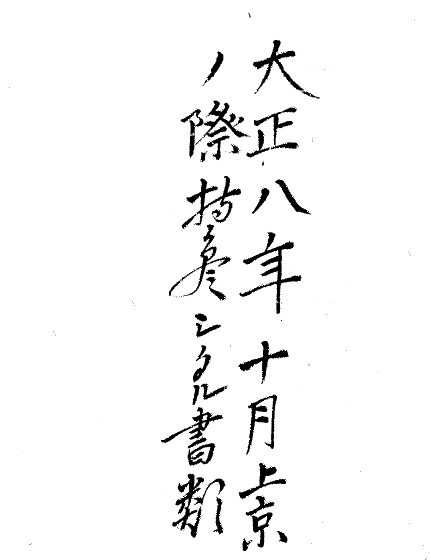 大正八年十月上京
ノ際持参シタル書類